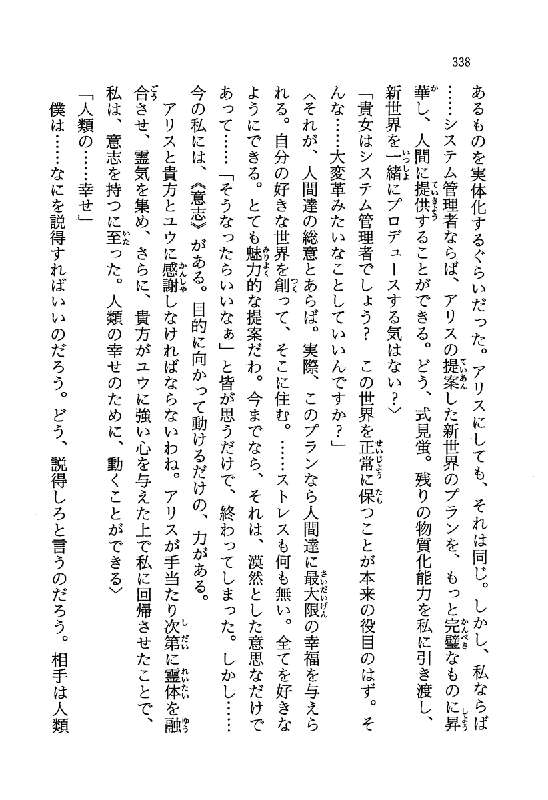 338
あるものを実体化するぐらいだった。アリスにしても、それは同じ。しかし、私ならば
……システム管理者ならば、アリスの提案した新世界のプランを、もっと完璧なものに昇
華し、人間に提供することができる。どう、式見蛍。残りの物質化能力を私に引き渡し、
新世界を一緒にプロデュースする気はない？〉
「貴女はシステム管理者でしょう？　この世界を正常に保つことが本来の役目のはず。そ
んな……大変革みたいなことしていいんですか？」
〈それが、人間達の総意とあらば。実際、このプランなら人間達に最大限の幸福を与えら
れる。自分の好きな世界を創って、そこに住む。……ストレスも何も無い。全てを好きな
ようにできる。とても魅力的な提案だわ。今までなら、それは、漠然とした意思なだけで
あって……「そうなったらいいなぁ」と皆が思うだけで、終わってしまった。しかし……
今の私には、《意志》がある。目的に向かって動けるだけの、力がある。
アリスと貴方とユウに感謝しなければならないわね。アリスが手当たり次第に霊体を融
合させ、霊気を集め、さらに、貴方がユウに強い心を与えた上で私に回帰させたことで、
私は、意志を持つに至った。人類の幸せのために、動くことができる〉
「人類の……幸せ」
僕は……なにを説得すればいいのだろう。どう、説得しろと言うのだろう。相手は人類